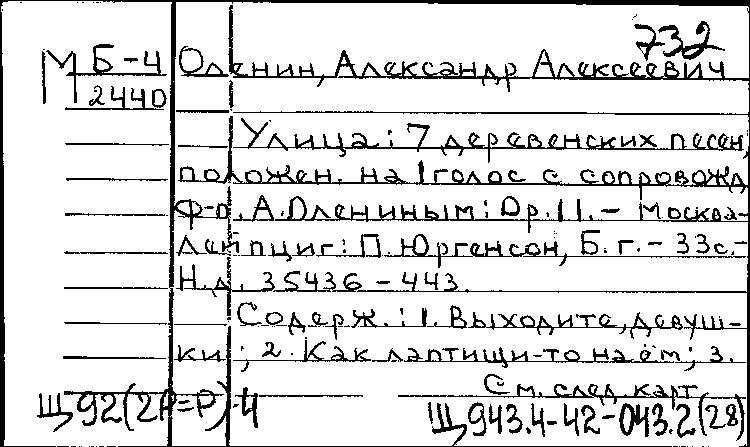 732
М Б-4 Оленин, Александр Алексеевич
2440
Улица: 7 деревенских песен,
положен. на 1 голос с сопровожд
ф-п. А. Олениным: Op. 11. - Москва-
Лейпциг: П. Юргенсон, Б. г. - 33 с. -
Н.д. 35436-443.
Содерж.: 1. Выходите, девуш-
ки; 2. Как лаптищи-то на ём; 3.
См. след. карт
Щ92(2Р=Р)-4 Щ943.4-42-043.2(28)